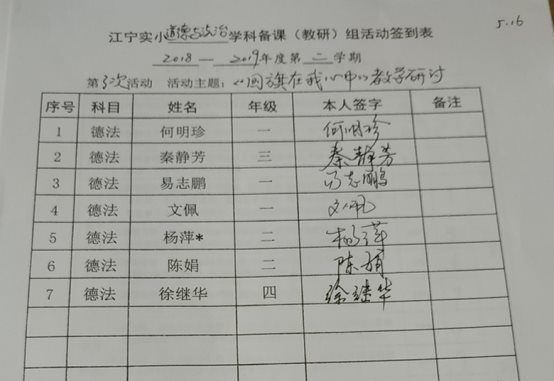 5.16
江宁实小道德与法治学科备课（教研）组活动签到表
2018—2019年度第二学期
第3次活动 活动主题：《国旗在我心中》教学研讨
序号 科目 姓名 年级 本人签字 备注
1 德法 何明珍 一 何明珍
2 德法 秦静芳 三 秦静芳
3 德法 易志鹏 一 易志鹏
4 德法 文佩 一 文佩
5 德法 杨萍* 二 杨萍
6 德法 陈娟 二 陈娟
7 德法 徐继华 四 徐继华